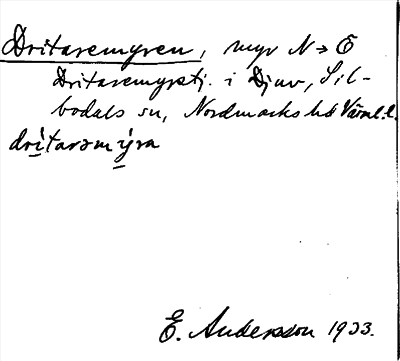 Dritaremyren, myr N → Ö
Dritaremyrstj. i Djuv, Sil-
bodals sn, Nordmarks hd Värml. l.
drí̱tarəmý̱ra
E. Andersson 1933.